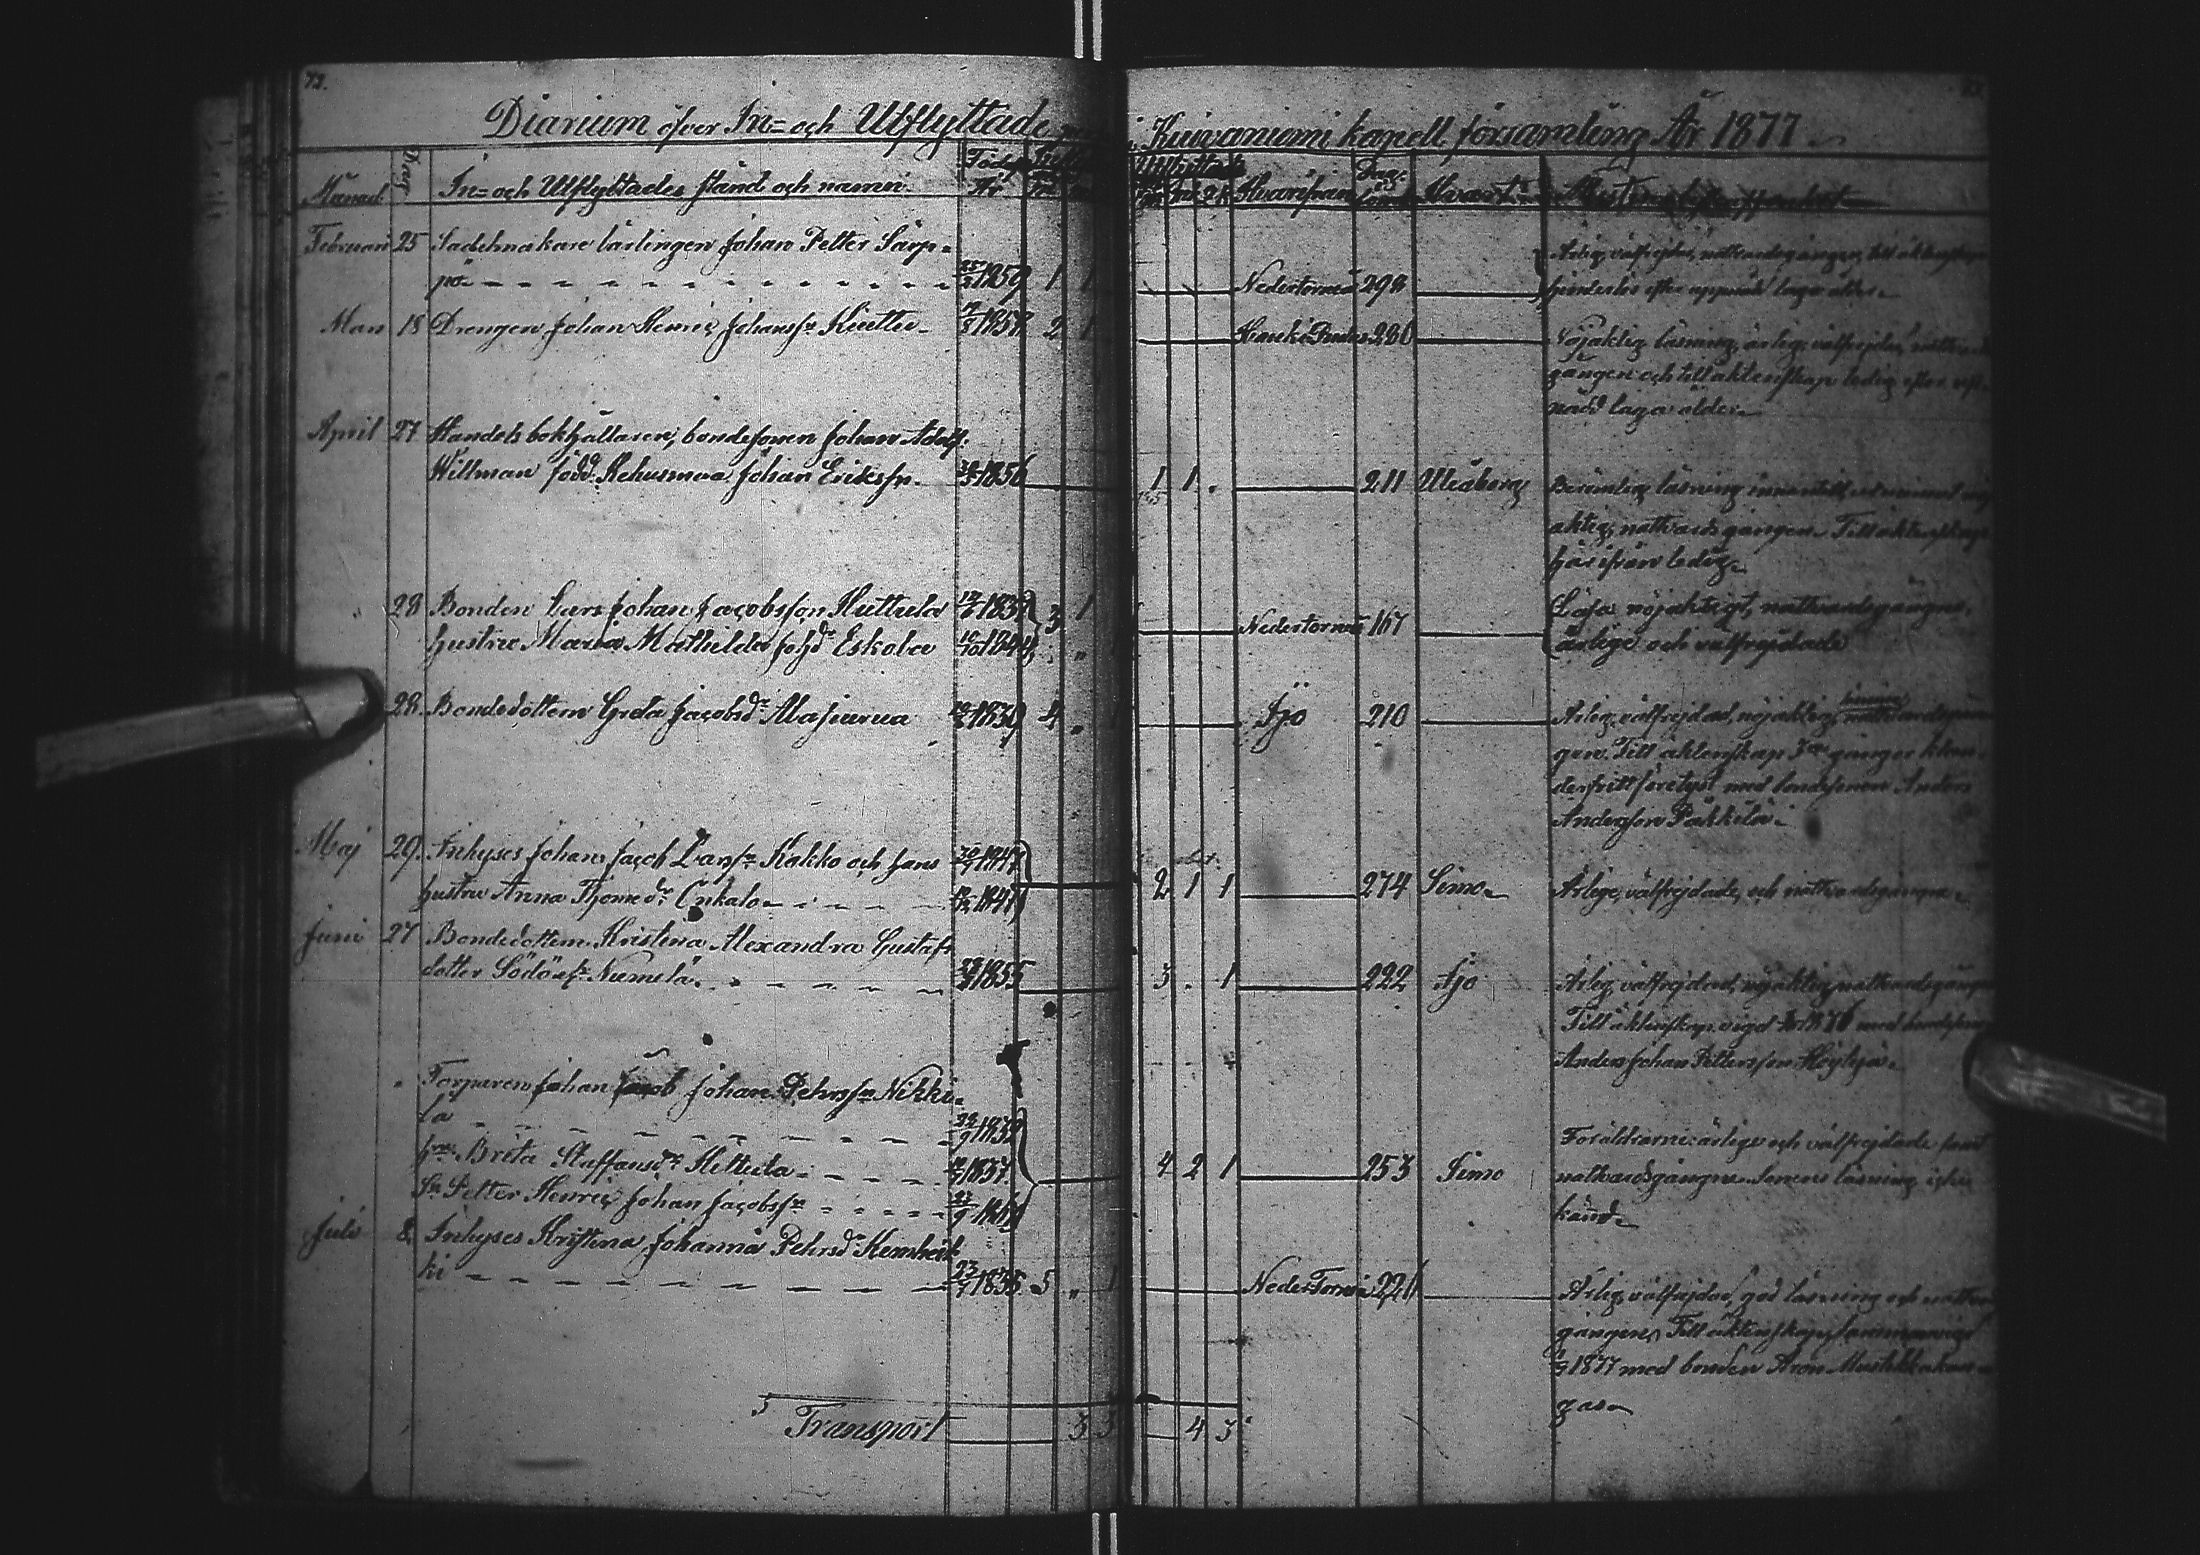 72.
Diarium öfver In= och Utflyttade i Kuivaniemi kapell församling År 1877
Månad Dag In= och Utflyttades stånd och namn. Födelse År Hvarifrån Hvart
Februari 25 Sadelmakare lärlingen Johan Petter Särp=
pä 25/3 1859 1 1 Nedertorneå 298
Ärlig, välfrejdad, nattvardsgången, till äktenskap
hinderlös efter uppnådd laga ålder
Mars 18 Drengen Johan Henric Johansson 1857 2 1 Haukipudas 280
Nöjaktig läsning, ärlig, välfrejdad, nattvards
gången och till äktenskap ledig efter upp-
nådd laga ålder
April 27 Handels bokhållaren, bondesonen Johan Adolf
Willman född Rehusmaa Johan Eriksn. 1856 1 1 . 211 Uleåborg
Berömlig läsning innantill
aktig, nattvardsgången. Till äktenskap
härifrån ledig
28 Bonden Lars Johan Jacobsson Huttula 1837 3 1 Nedertorneå 167
hustru Maria Mathilda Johd. Eskola 16/10 1844
Läsa nöjaktigt, nattvardsgångne,
ärlige och välfrejdade
28. Bondedottern Greta Jacobsd. Alasuurua 1839 4 " 1 Ijo 210
Ärlig, välfrejdad, nöjaktig, nattvardsgån
gen. Till äktenskap 3ne gånger hin-
derfritt förelyst med bondesonen Anders
Andersson Päkkilä.
Maj 29. Inhyses Johan Jacob Larsn Kakko och hans 1847
hustru Anna Thomed. Onkalo 1841 2 1 1 274 Simo
Ärlige, välfrejdade, och nattvardsgångne
Juni 27 Bondedottern Kristina Alexandra Gustafs
dotter Niemelä 1855 3 . 1 222 Ijo
Ärlig, välfrejdad, nöjaktig, nattvardsgången
Till äktenskap vigd 1876 med bondeson
Anders Johan Pettersson
" Torparen Johan Johan Pehrsson Nikki=
lä 1832
hu. Brita Staffansdr. Hettula 1837 4 2 1 253 Simo
Sn. Petter Henric Johan Jacobsn 27/9
Föräldrarne ärlige och välfrejdade samt
nattvardsgångne Sonens läsning icke
känd
Juli 8. Inhyses Kristina Johanna Pehrsd. Kemheik
ki 23/7 1835 5 " 1 Neder Torneå 226
Ärlig, välfrejdad, god läsning och nattvards
gången. Till äktenskap sammanvigd
1877 med bonden Aron
gas
Transport 3 5 4 3